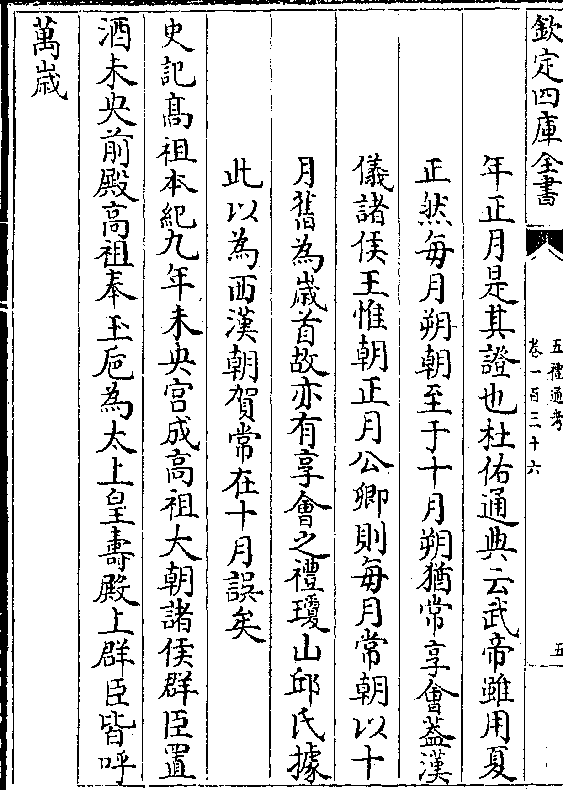 欽定四庫全書
五禮通考
卷一百三十六
五
年正月是其證也杜佑通典云武帝雖用夏
正然每月朔朝至于十月朔猶常享會葢漢
儀諸侯王惟朝正月公卿則每月常朝以十
月舊為嵗首故亦有享會之禮瓊山邱氏據
此以為西漢朝賀常在十月誤矣
史記髙祖本紀九年未央宫成高祖大朝諸侯群臣置
酒未央前殿高祖奉玉卮為太上皇壽殿上群臣皆呼
萬嵗